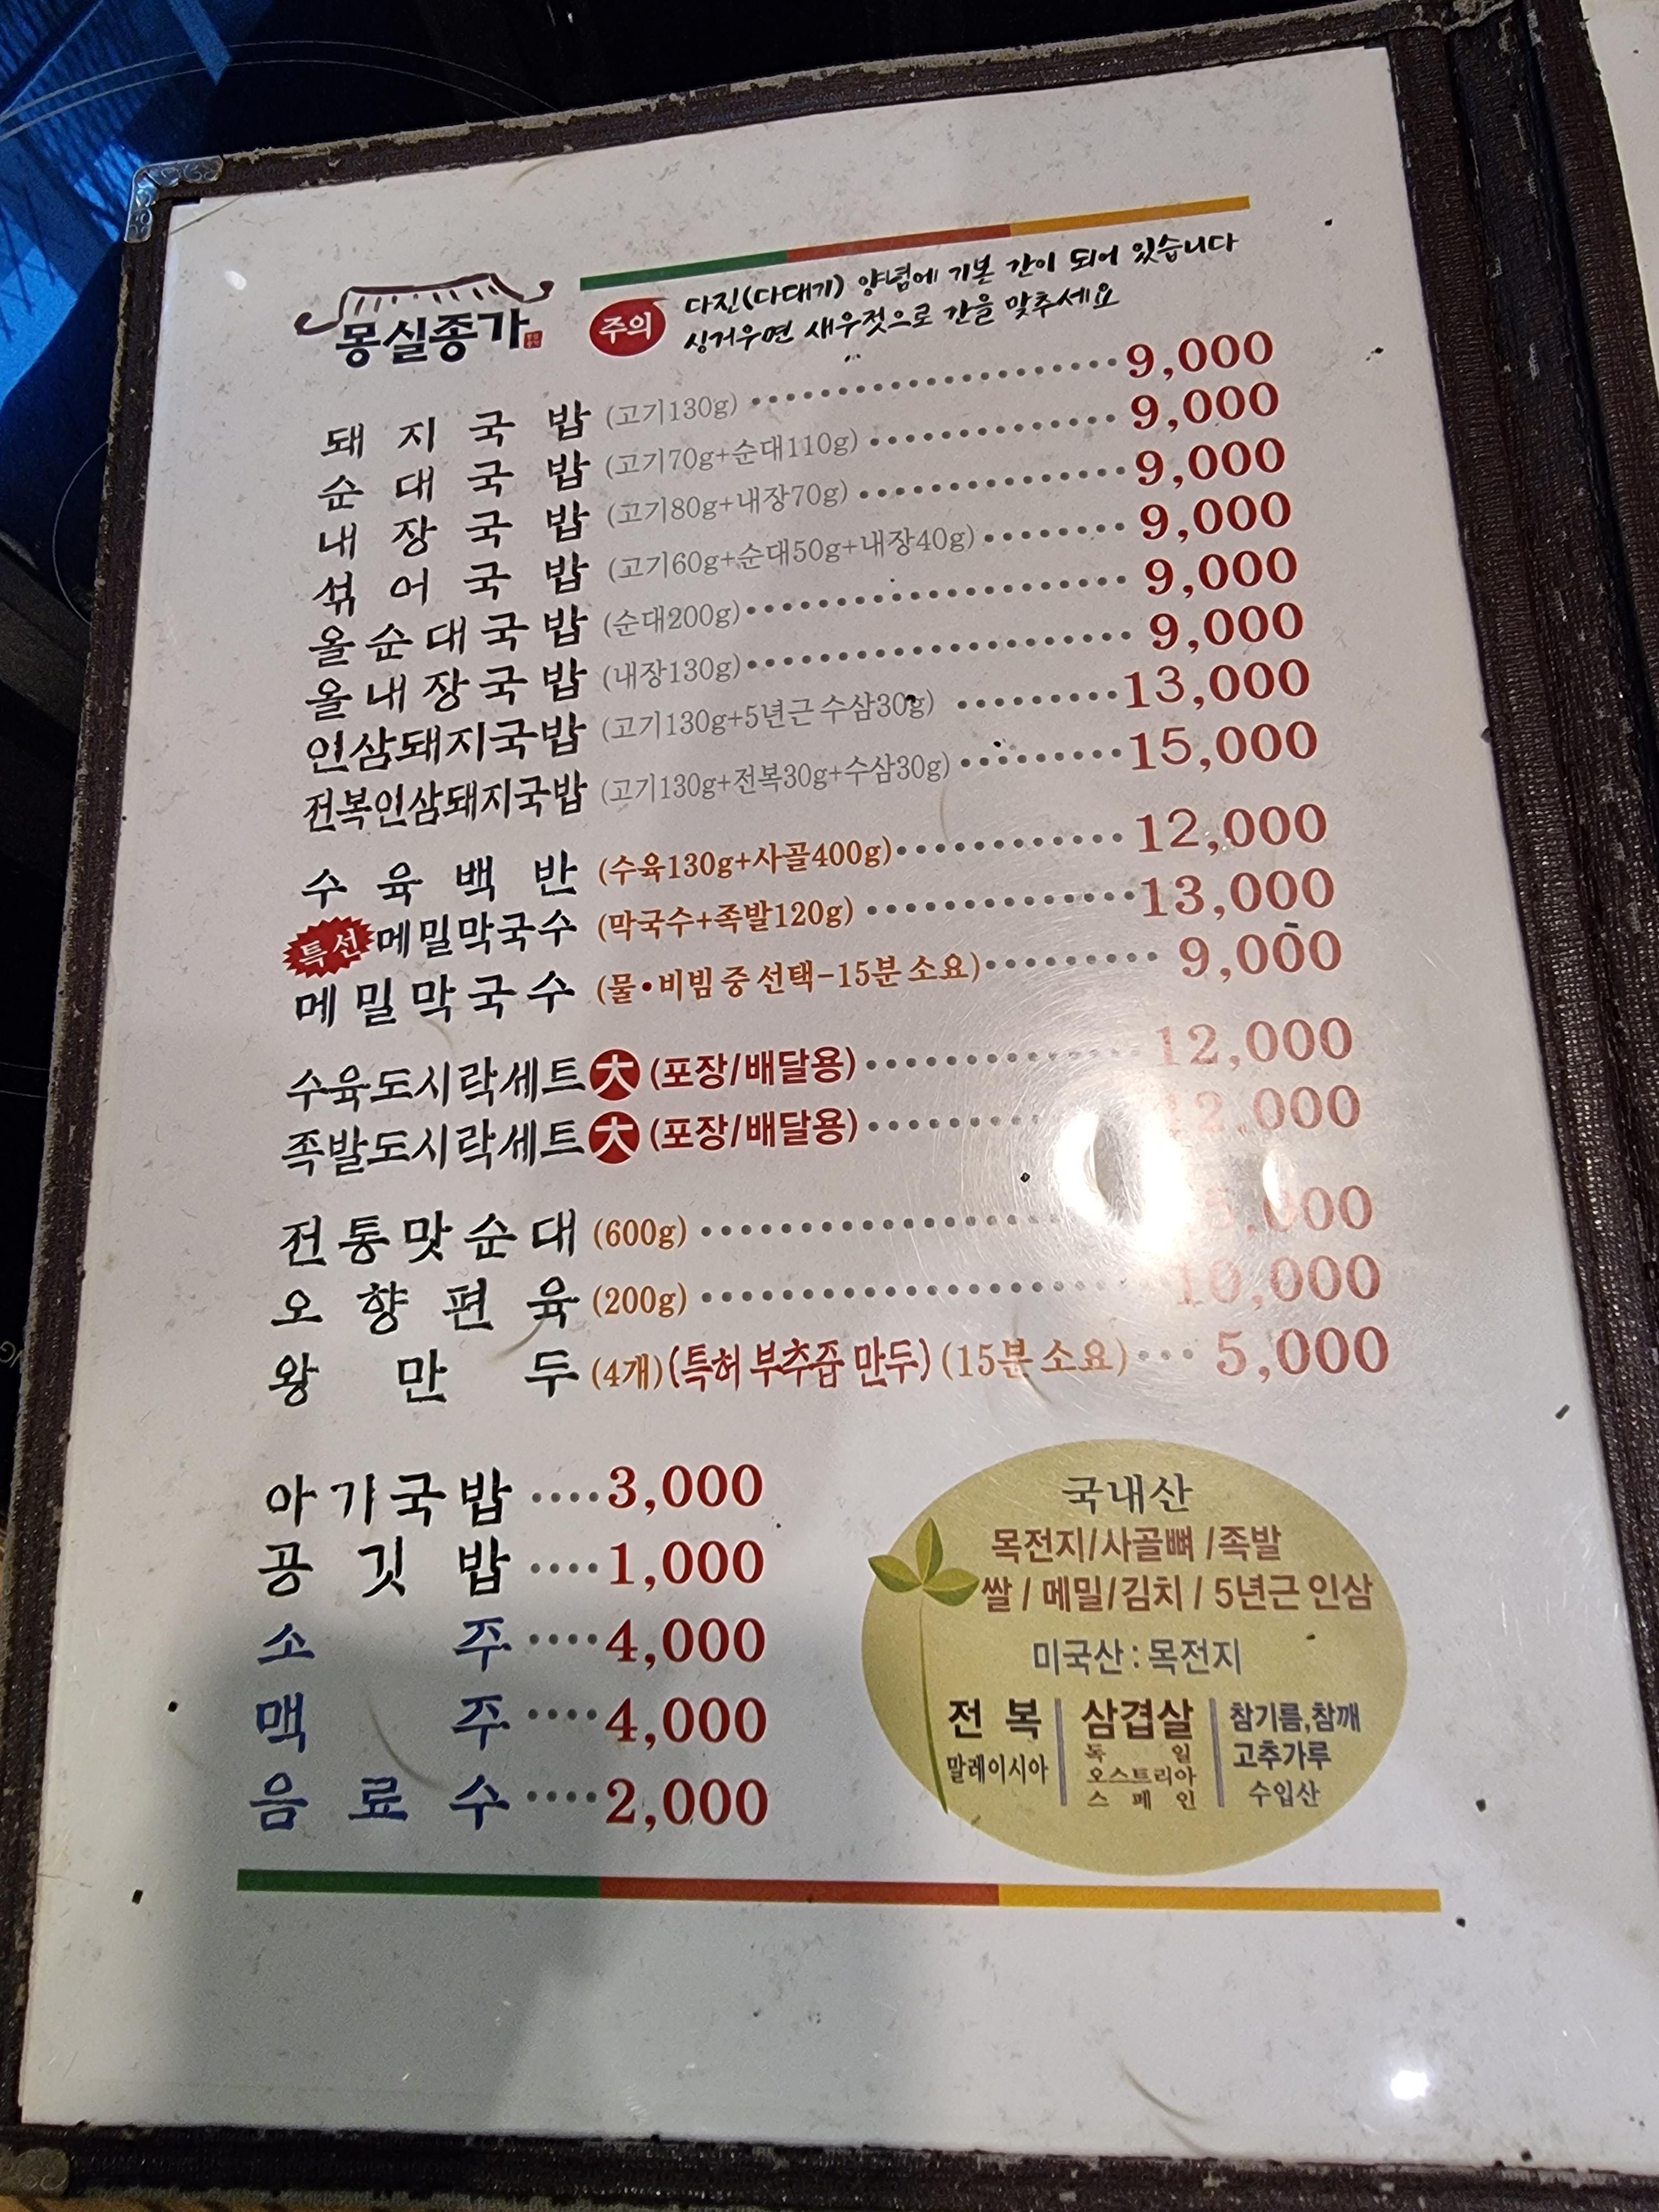 몽실종가
주의
다진(다대기) 양념에 기본 간이 되어 있습니다
싱거우면 새우젓으로 간을 맞추세요
돼지국밥 (고기130g) 9,000
순대국밥 (고기70g+순대110g) 9,000
내장국밥 (고기80g+내장70g) 9,000
섞어국밥 (고기60g+순대50g+내장40g) 9,000
올순대국밥 (순대200g) 9,000
올내장국밥 (내장130g) 9,000
인삼돼지국밥 (고기130g+5년근 수삼30g) 13,000
전복인삼돼지국밥 (고기130g+전복30g+수삼30g) 15,000
수육백반 (수육130g+사골400g) 12,000
특선 메밀막국수 (막국수+족발120g) 13,000
메밀막국수 (물•비빔 중 선택-15분 소요) 9,000
수육도시락세트 大 (포장/배달용) 12,000
족발도시락세트 大 (포장/배달용) 12,000
전통맛순대 (600g)
오향편육 (200g) 10,000
왕만두 (4개)(특허 부추즙 만두) (15분 소요) 5,000
아기국밥 3,000
공깃밥 1,000
소주 4,000
맥주 4,000
음료수 2,000
국내산
목전지/사골뼈/족발
쌀/메밀/김치/5년근 인삼
미국산 : 목전지
전복
말레이시아
삼겹살
독일
오스트리아
스페인
참기름,참깨
고추가루
수입산